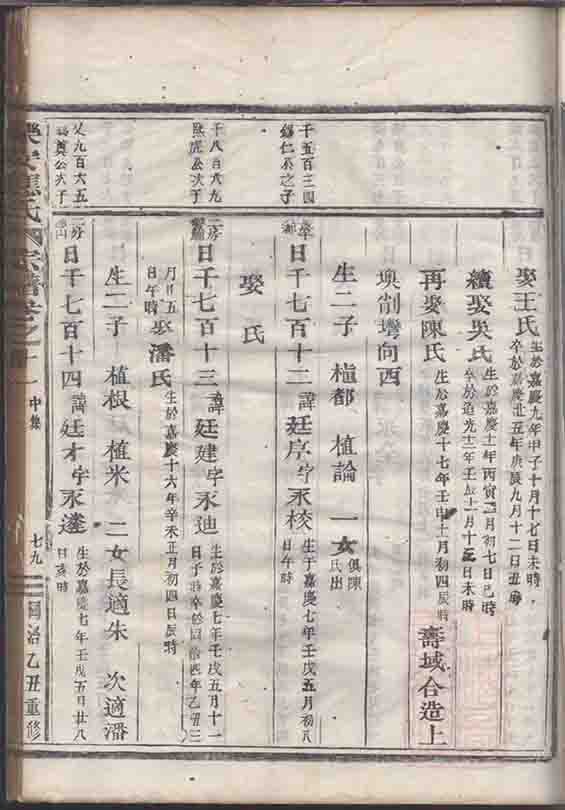 娶王氏 生於嘉慶九年甲子十月十七日未時
卒於嘉慶廿五年庚辰九月十二日丑時
續娶吳氏 生於嘉慶十一年丙寅二月初七日巳時
卒於道光十二年壬辰十一月十五日未時
再娶陳氏 生於嘉慶十七年壬申十一月初四辰時 壽域合造上
塽削塆向西
生二子 植都 植論 一女 俱陳
氏出
千五百三四
錫仁公之子
日千七百十二 諱廷序字永校 生于嘉慶七年壬戌五月初八
日午時
娶 氏
千八百六九
煕虎公次子
二房
日千七百十三 諱廷建字永迪 生於嘉慶七年壬戌五月十一
日子時卒於同治四年乙丑三
月廿五
日午時
娶潘氏 生於嘉慶十六年辛未正月初四日辰時
生二子 植根 植米 二女長適朱 次適潘
乂九百六五
奠公次子
二房
日千七百十四 諱廷才字永達 生於嘉慶七年壬戌五月廿八
日亥時
氏 宗譜卷之十一 中集 七九 同治乙丑重修